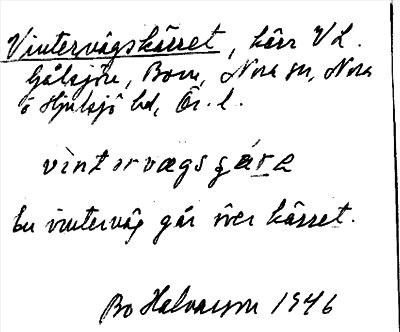 Vintervägskärret, kärr V L.
Gålsjön, Bom, Nora sn, Nora
o Hjulsjö hd, Ör. l.
vintərvægsçærə
En vinterväg går över kärret.
Bo Halvarson 1946